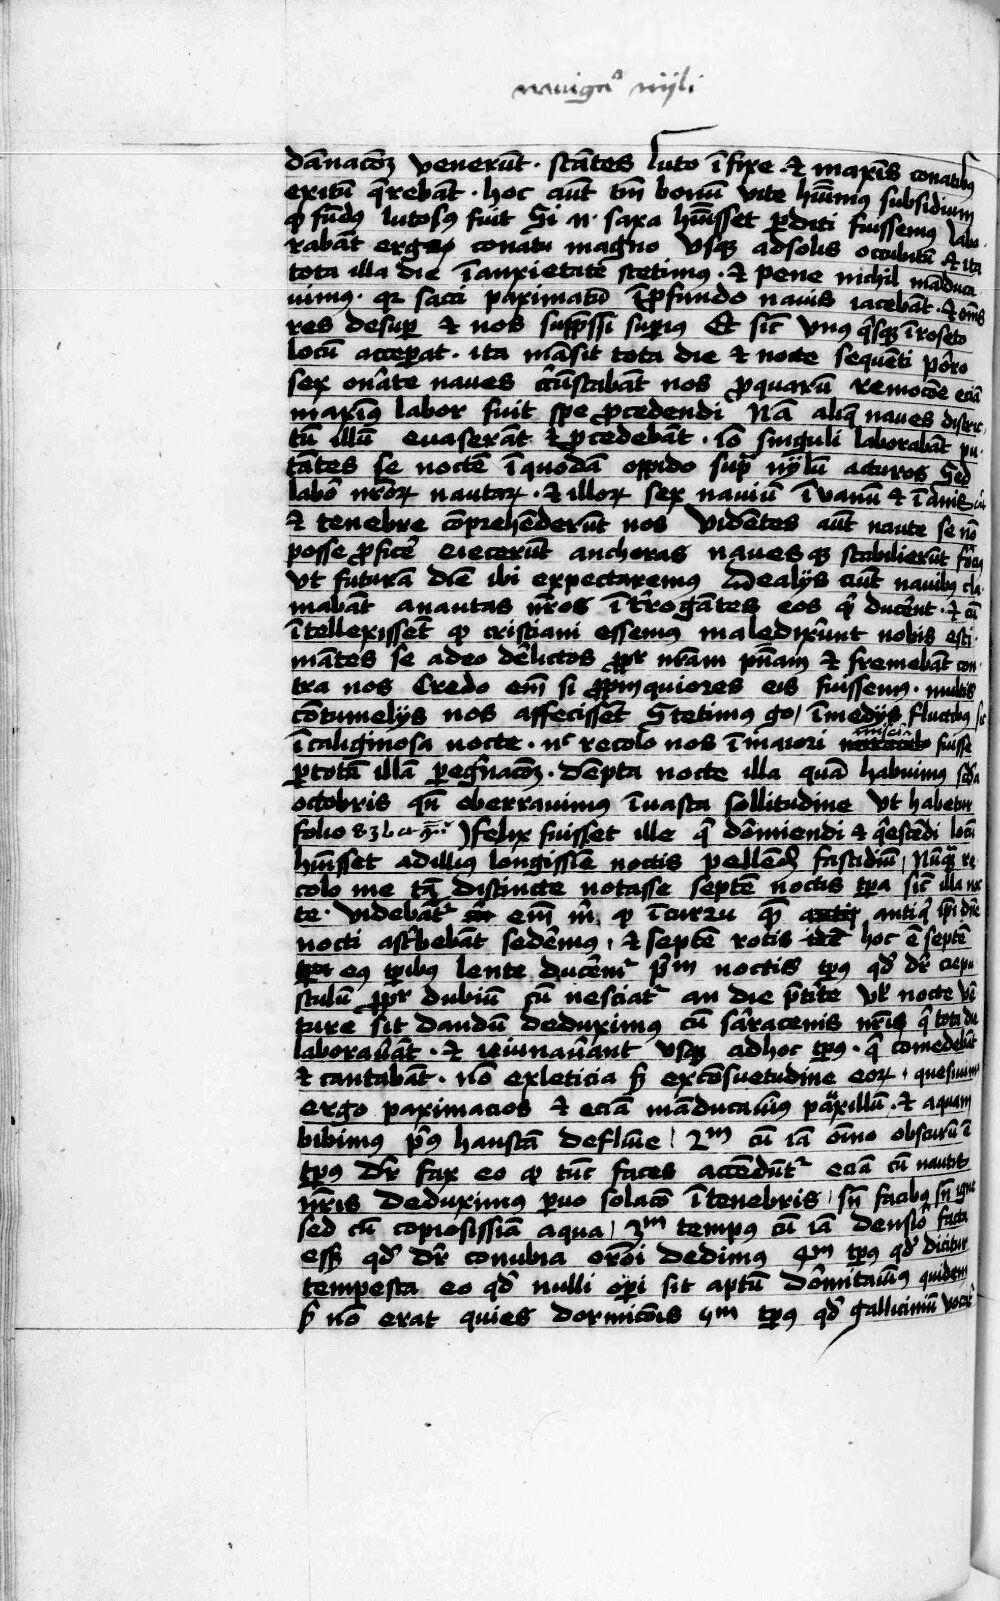 nauigaᵒ nyli
dānacōꝫ venerūt · stātes luto īfixe · et maxīs conatibꝯ
exitū q̄rebāt · hoc aūt tm̄ bonū vite hūimꝯ subsidium
ꝙ fūdꝯ lutosꝯ fuit Si n· saxa hūisset ꝑditi fuissemꝯ labo
rabāt ergo conatu magno vsqꝫ adsolis occubitū et ita
tota illa die īanxietate stetimꝯ · et pene nichil māduca
uimꝯ · qꝛ sacci paximatū īꝓfundo nauis iacebāt · et oīs
res desuꝑ et nos suꝑssi suꝑiꝯ Et sic̄ vnꝯ q̄sqꝫ īroseto
locū acceꝑat · ita māsit tota die et nocte sequēti pōro
sex on̄ate naues c̄cūstabāt nos ꝓquarū remocōe eciā
maxīꝯ labor fuit spe ꝓcedendi Nā aliq̄ naues distric
tū illū euaserāt et ꝓcedebāt · iō singuli laborabāt pu
tātes se noctē īquodā oppido supͣ nylū acturos Sed
labō nr̄oꝝ nautaꝝ · et illoꝝ sex nauiū īvanū et īanis
et tenebre cōprehēderūt nos vidētes aūt naute se nō
posse ꝓficē eiecerūt anchoras naues qꝫ stabilierūt
vt futurā diē ibi expectaremꝯ Dealijs aūt nauibꝯ cla
mabāt anautas nr̄os īt̄rogātes eos q̄ ducēnt · et cū
ītellexissēt ꝙ cristiani essemꝯ maledixūnt nobis esti
mātes se adeo dēlictos ꝓpr nr̄am pn̄am et fremebāt con
tra nos Credo em̄ si ꝓpīnquiores eis fuissemꝯ · multis
cōtumelijs nos affecissēt Stetimꝯ go / īmedijs fluctibꝯ sic
īcaliginosa nocte · nᶜ recolo nos īmaiori anscia fuisse
ꝑtotā illā ꝑegnacōꝫ · dēpta nocte illa quā habuimꝯ scd̄a
octobris qn̄ oberrauimꝯ īuasta sollitudine vt habetur
folio 83 b Felix fuisset ille q̄ dōmiendi et q̄escēdi locū
hūisset adillius longissīe noctis pellēdꝫ fastidiū / Nūqͣꝫ re
colo me tā distincte notasse septē noctis tꝑa sic̄ illa noc
te · videbāt em̄ m̄ ꝙ īcurru quē antiq̄ ipsi diīe
nocti asc̄bebāt sedēmꝯ · et septē rotis hoc ē septē
eꝯ tꝑibꝯ lente ducēmᷣ pᷓm noctis tꝑꝯ qd̄ dr̄ crepu
sculū ꝓpr dubiū cū nesciatᷣ an die p̄tite vl̄ nocte vē
ture sit dandū deduximꝯ cū sāracenis nr̄is q̄ tota die
laborabāt · et ieiunauāant vsqꝫ adhoc tꝑꝯ · q̄ comedebāt
et cantabāt · nō exleticia sꝫ excōsuetudine eoꝝ · quesiuim
ergo paximacios et eciā māducauīꝯ pāxillū · et aquam
bibimꝯ pͥꝯ haustā deflūie / 2ᵐ cū iā ōīno obscurū ē
tꝑꝯ dr̄ fax eo ꝙ tūc faces accēdūtᷣ eciā cū nautis
nr̄is deduximꝯ ꝑuo solacō ītenebris / sn̄ facibꝯ sn̄ igne
sed cū copiosissīa aqua / 3ᵐ tempꝯ cū iā densiō facta
essꝫ qd̄ dr̄ conubia orōi dedimꝯ 4ᵐ tꝑꝯ qd̄ dicitur
tempesta eo qd̄ nulli oꝑi sit aptū dōmitauīꝯ quidem
sꝫ nō erat quies dormicōis 5ᵐ tꝑꝯ qd̄ gallicīniū vocatᷣ